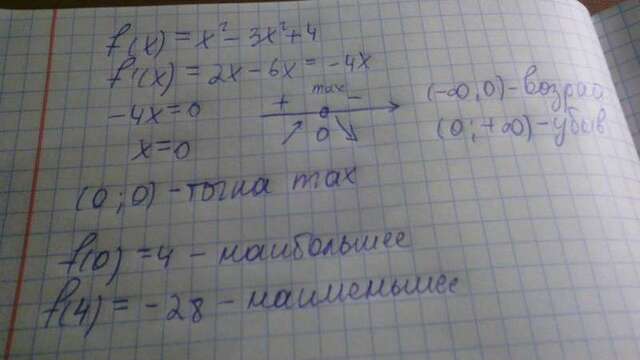 f(x) = x² - 3x² + 4
f'(x) = 2x - 6x = -4x
-4x = 0
x = 0
+ max -
0
(-∞; 0) - возрас
(0; +∞) - убыв
(0; 0) - точка max
f(0) = 4 - наибольшее
f(4) = -28 - наименьшее